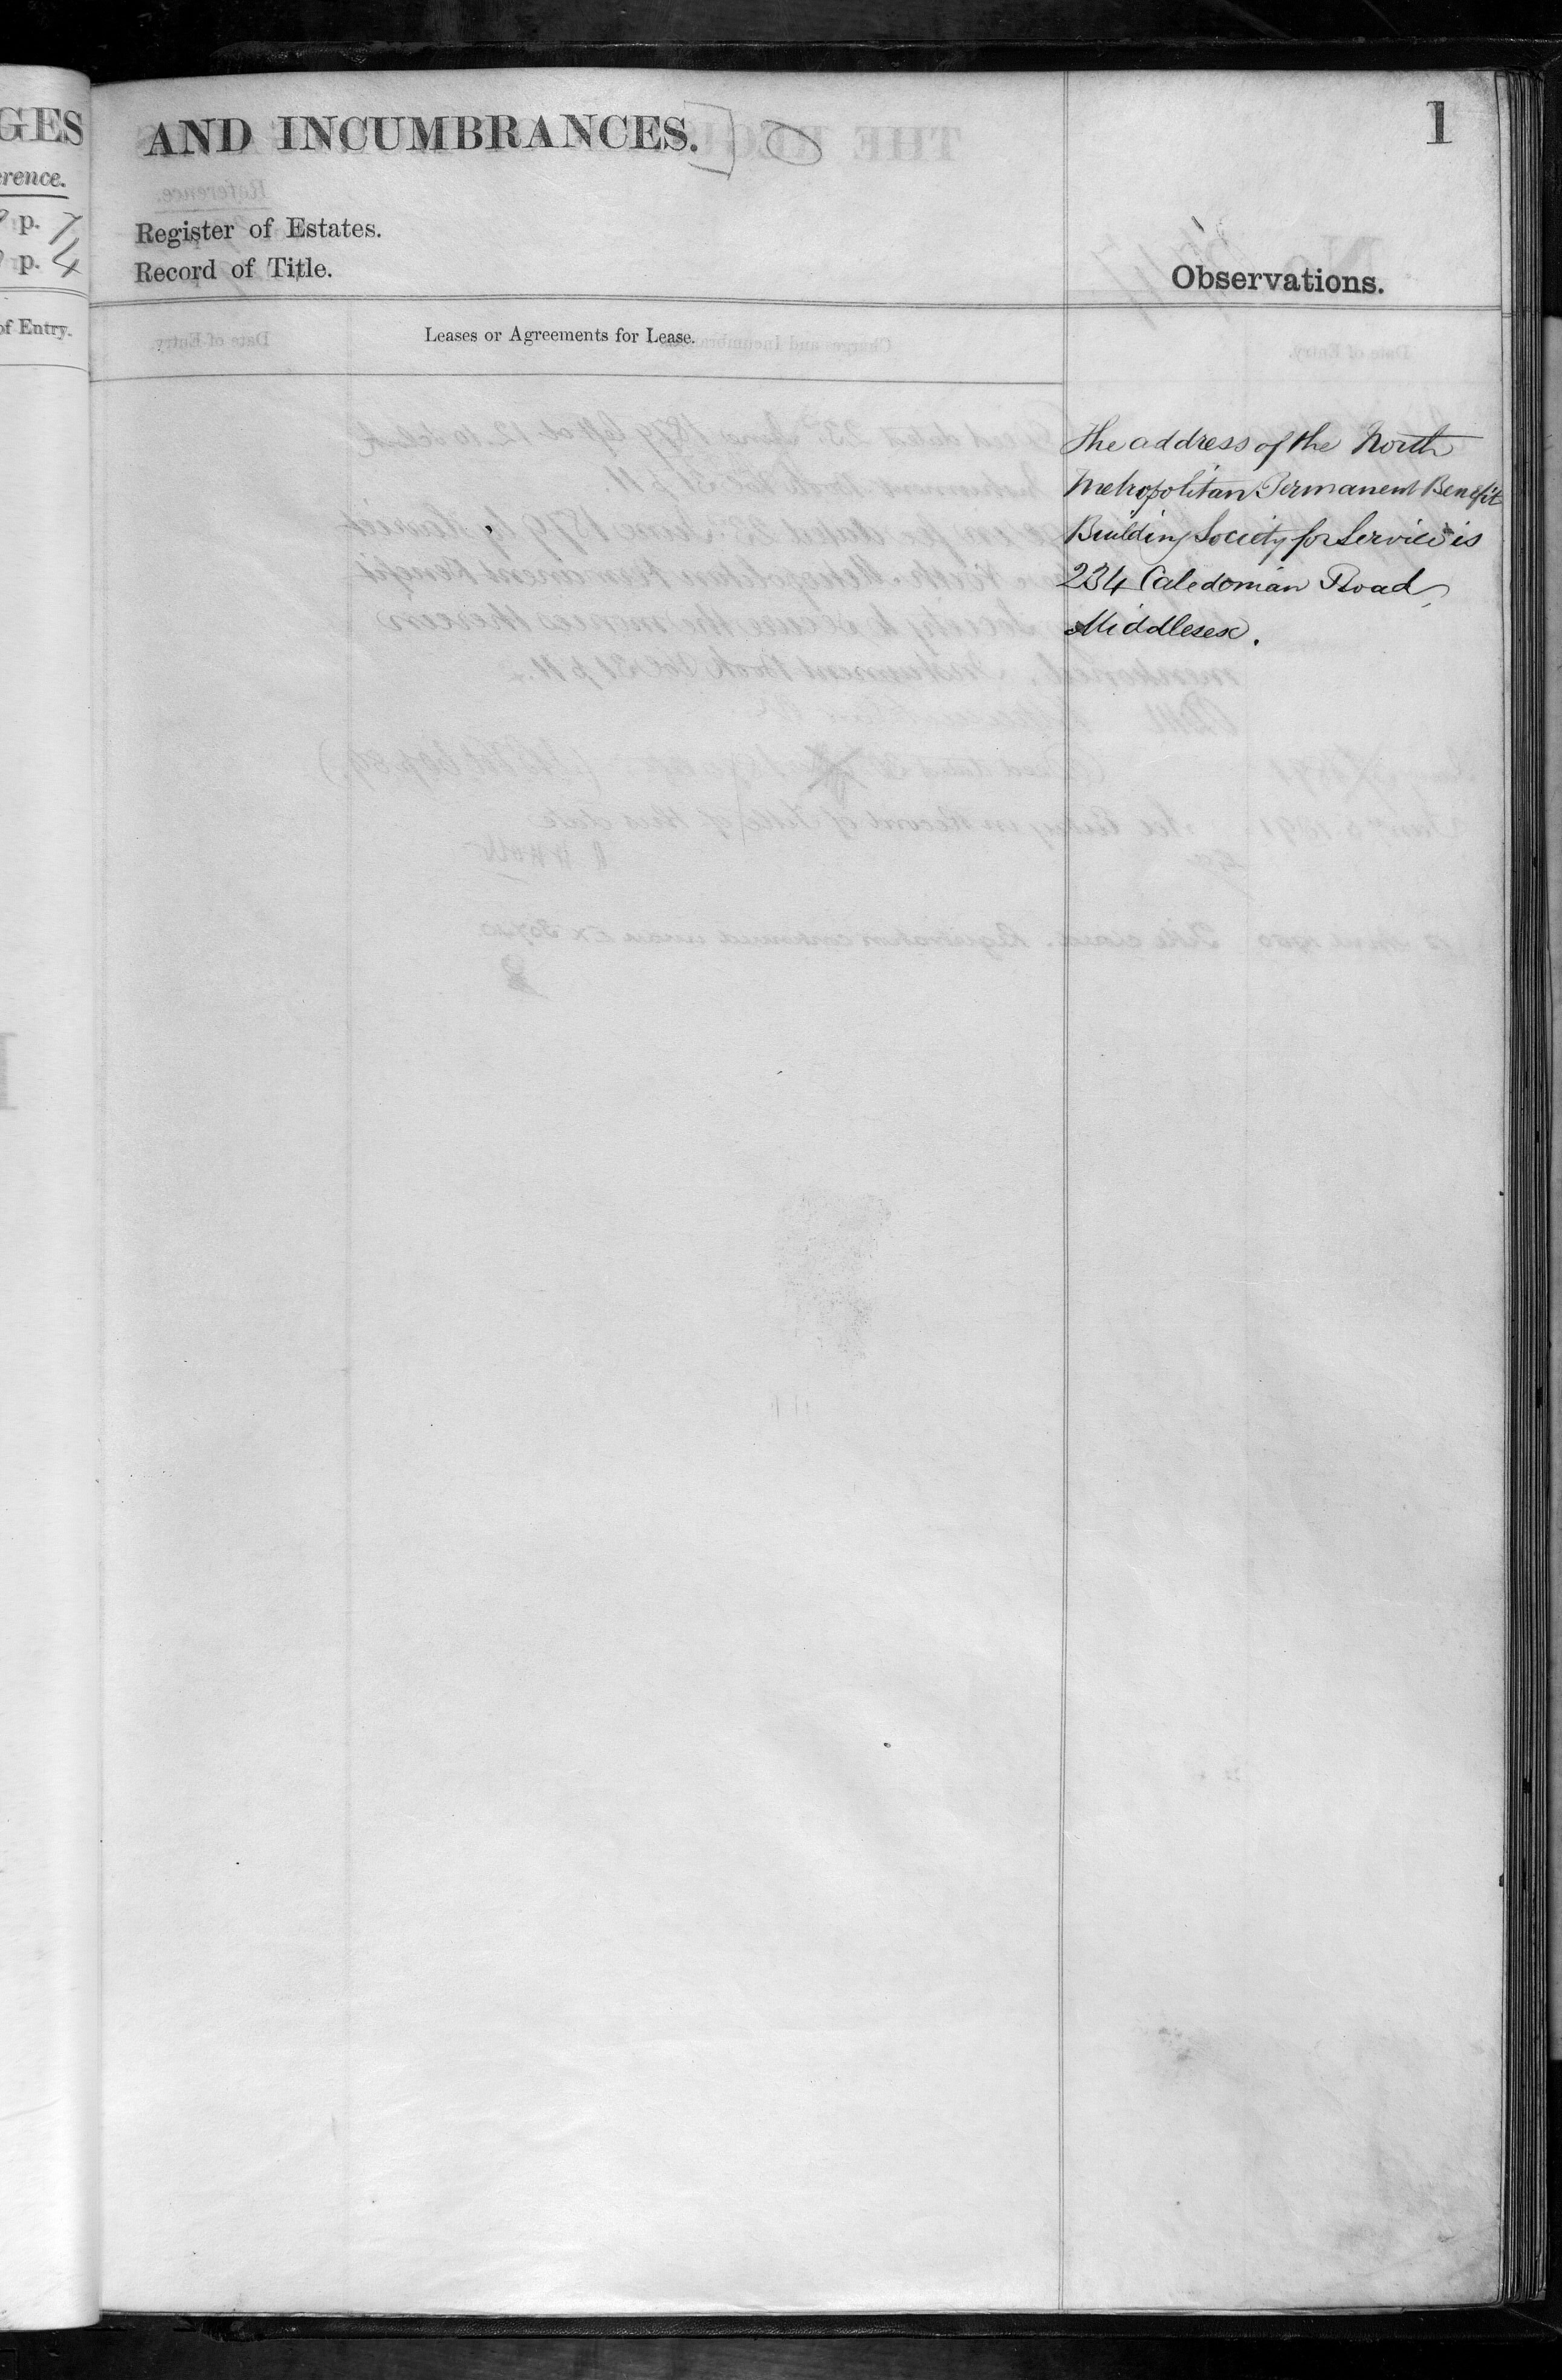 GES
erence.
p. 7
p. 4
of Entry.
AND INCUMBRANCES.
1
Register of Estates.
Record of Title.
Observations.
Leases or Agreements for Lease.
The address of the North
Metropolitan Permanent Benefit
Building Society for Service is
234 Caledonian Road,
Middlesex.